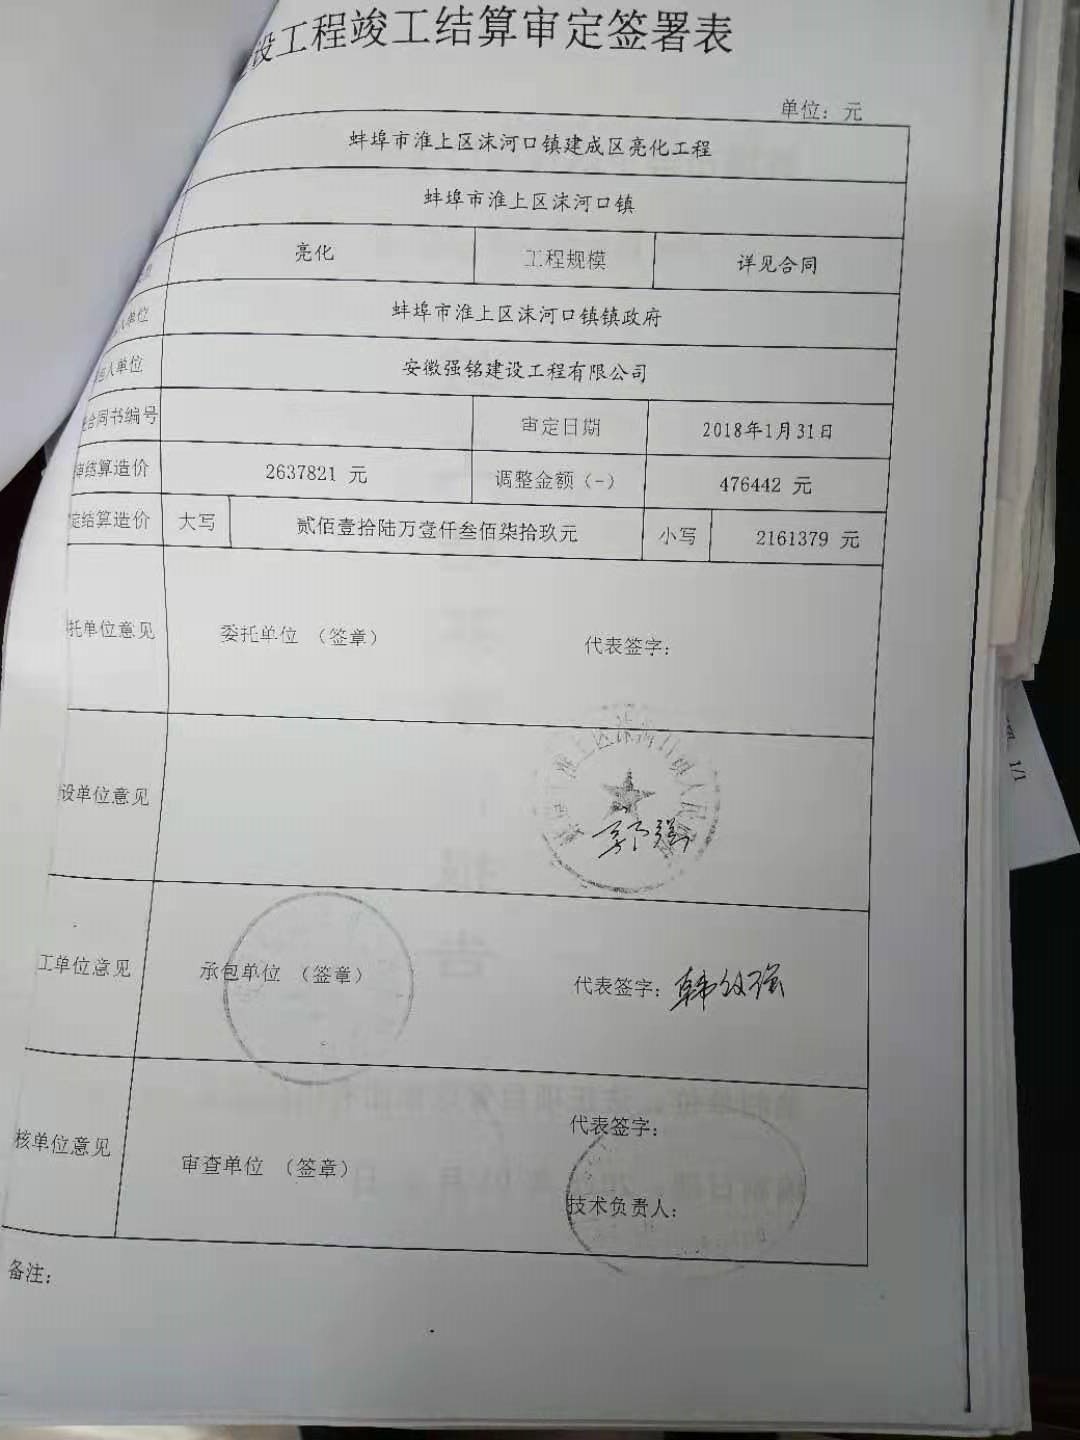 设工程竣工结算审定签署表
单位：元
蚌埠市淮上区沫河口镇建成区亮化工程
蚌埠市淮上区沫河口镇
亮化 工程规模 详见合同
人单位 蚌埠市淮上区沫河口镇镇政府
包人单位 安徽强铭建设工程有限公司
合同书编号 审定日期 2018年1月31日
审结算造价 2637821 元 调整金额（-） 476442 元
定结算造价 大写 贰佰壹拾陆万壹仟叁佰柒拾玖元 小写 2161379 元
托单位意见 委托单位 （签章） 代表签字：
设单位意见
淮上区沫河口镇人民
郭强
工单位意见 承包单位 （签章） 代表签字：
核单位意见 审查单位 （签章） 代表签字：
技术负责人：
备注：
1/1